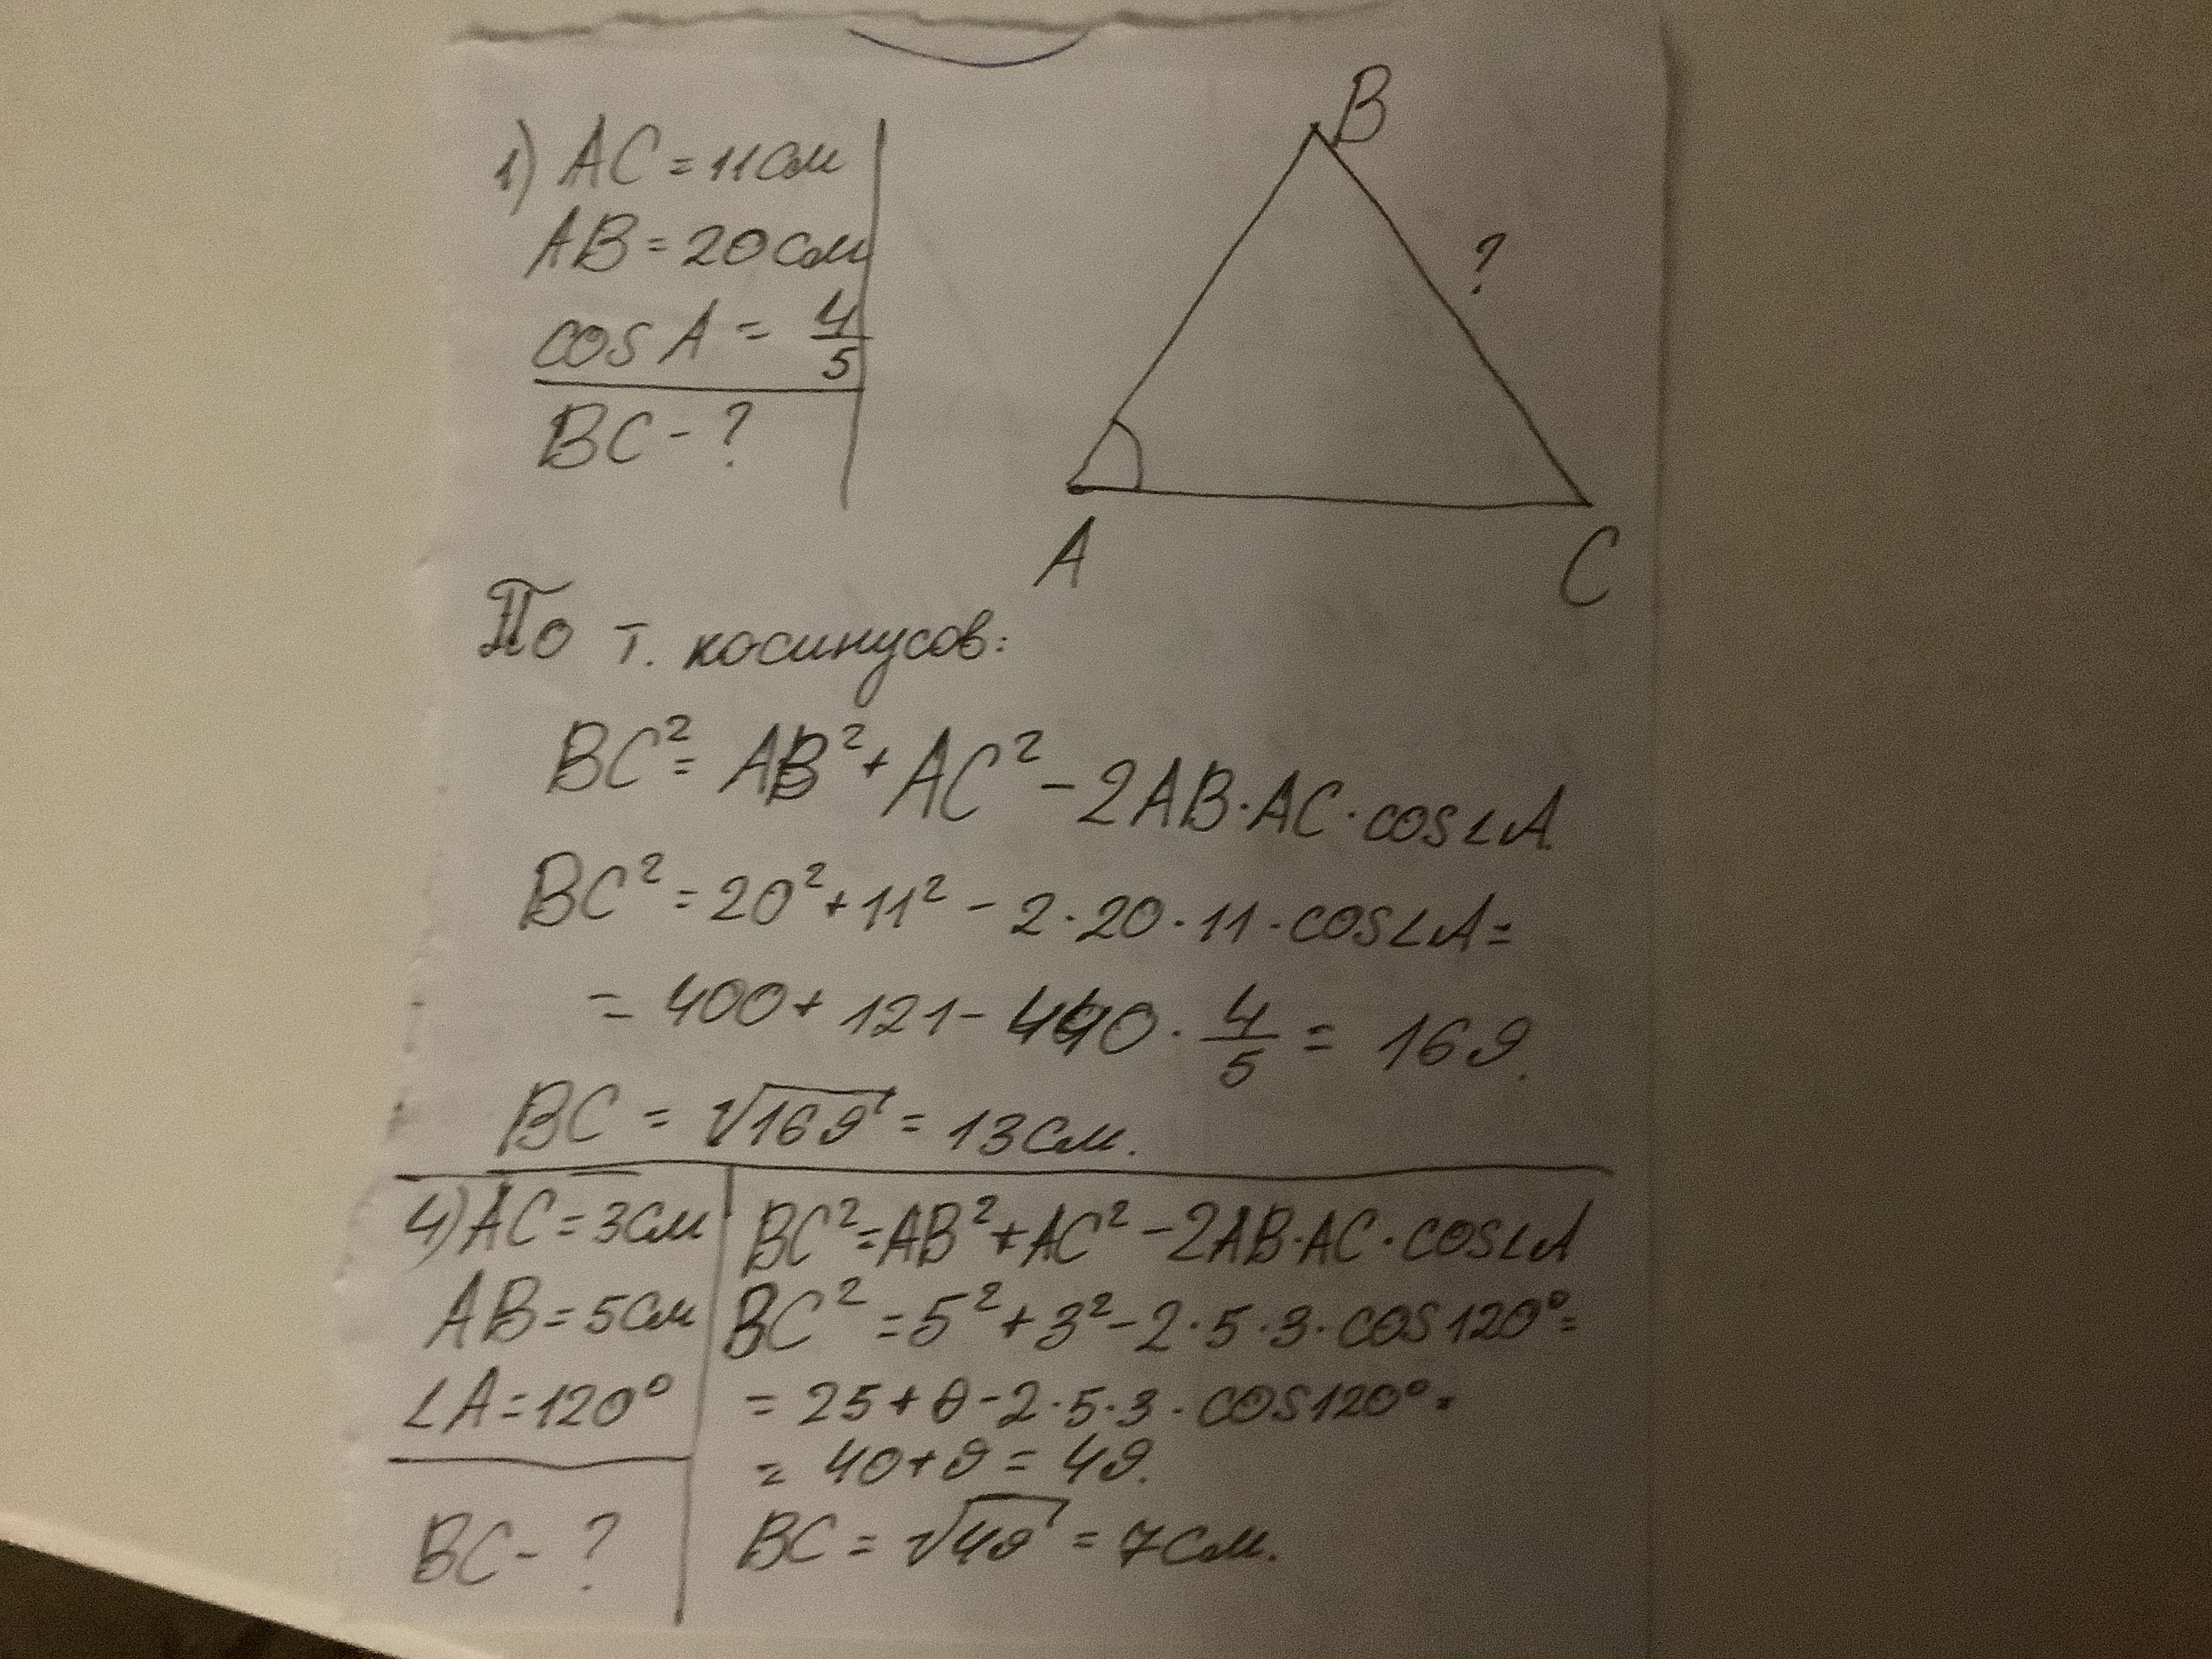 1) AC = 11 см
AB = 20 см
cos A = 4/5
BC - ?
B
?
A
C
По т. косинусов:
BC² = AB² + AC² - 2AB·AC·cos∠A.
BC² = 20² + 11² - 2·20·11·cos∠A =
= 400 + 121 - 440 · 4/5 = 169.
BC = √169 = 13 см.
4) AC = 3 см
AB = 5 см
∠A = 120°
BC - ?
BC² = AB² + AC² - 2AB·AC·cos∠A
BC² = 5² + 3² - 2·5·3·cos120° =
= 25 + 9 - 2·5·3·cos120° =
= 40 + 9 = 49.
BC = √49 = 7 см.